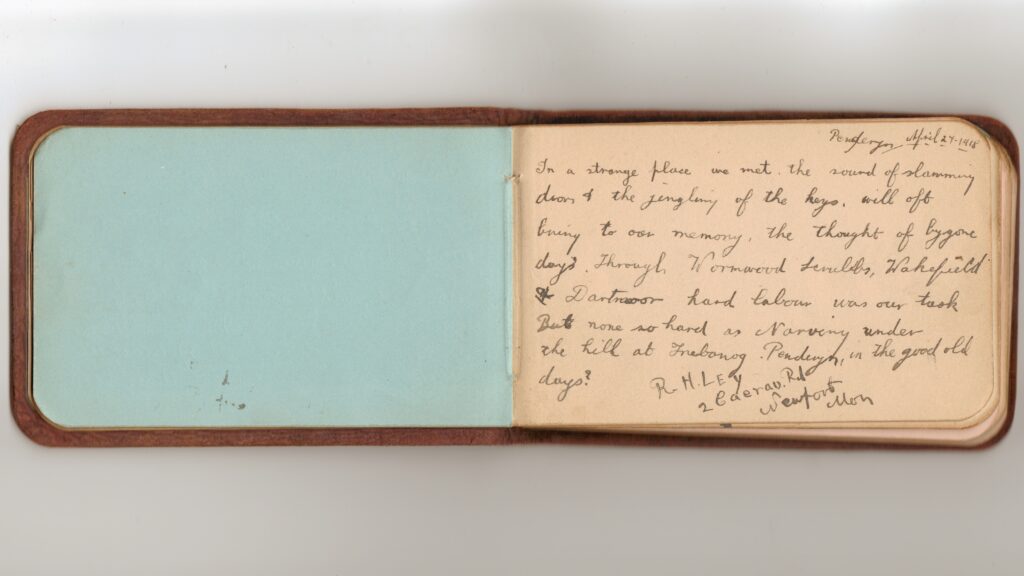 Penderyn April 27-1918
In a strange place we met. the sound of slamming
doors & the jingling of the keys. will oft
bring to our memory, the thought of bygone
days. Through Wormwood Scrubbs, Wakefield
& Dartmoor hard labour was our task
But none so hard as Narviny under
the hill at Trebanog. Penderyn, in the good old
days?
R. H. LEY
2 Caerau. Rd
Newport Mon